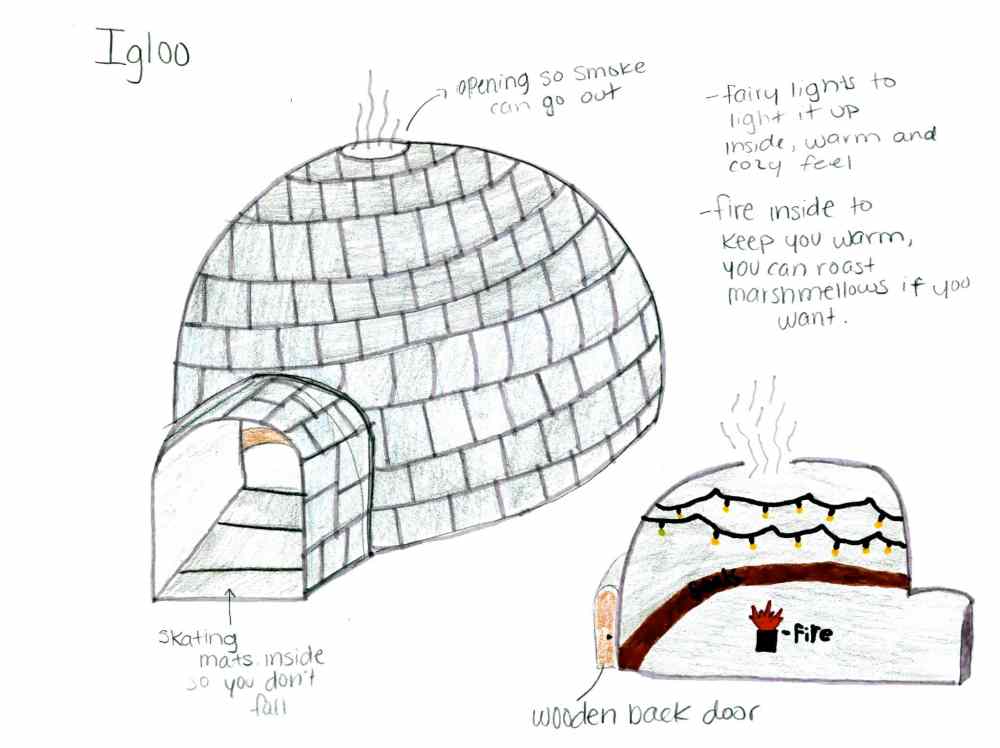 Igloo
opening so smoke
can go out
-fairy lights to
light it up
inside, warm and
cozy feel
-fire inside to
keep you warm,
you can roast
marshmellows if you
want.
skating
mats inside
so you don't
fall
-fire
wooden back door